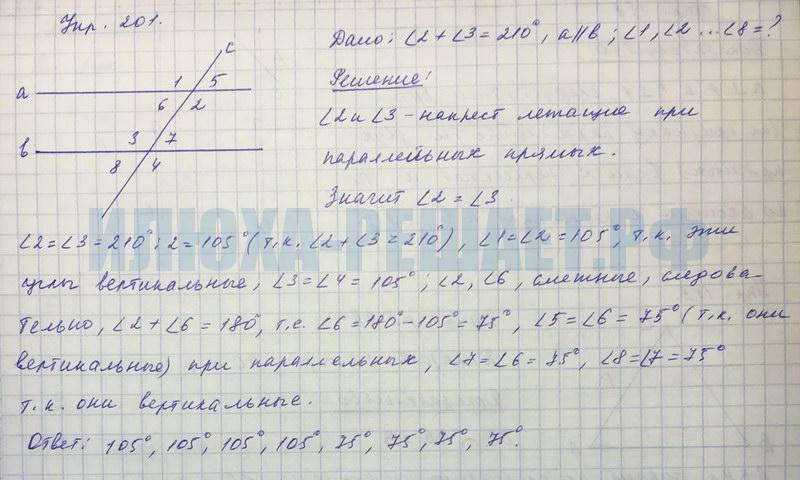 Упр. 201.
c
a
1
5
6
2
b
3
7
8
4
Дано: ∠2+∠3=210°, a∥b; ∠1,∠2...∠8=?
Решение:
∠2 и ∠3 - накрест лежащие при
параллельных прямых.
Значит ∠2 = ∠3
ИЛЮХА-РЕШАЕТ.РФ
∠2=∠3=210°:2=105° (т.к. ∠2+∠3=210°), ∠1=∠2=105°, т.к. эти
углы вертикальные, ∠3=∠4=105°; ∠2, ∠6, смежные, следова-
тельно, ∠2+∠6=180°, т.е. ∠6=180°-105°=75°, ∠5=∠6=75° (т.к. они
вертикальные) при параллельных, ∠7=∠6=75°, ∠8=∠7=75°
т.к. они вертикальные.
Ответ: 105°, 105°, 105°, 105°, 75°, 75°, 75°, 75°.